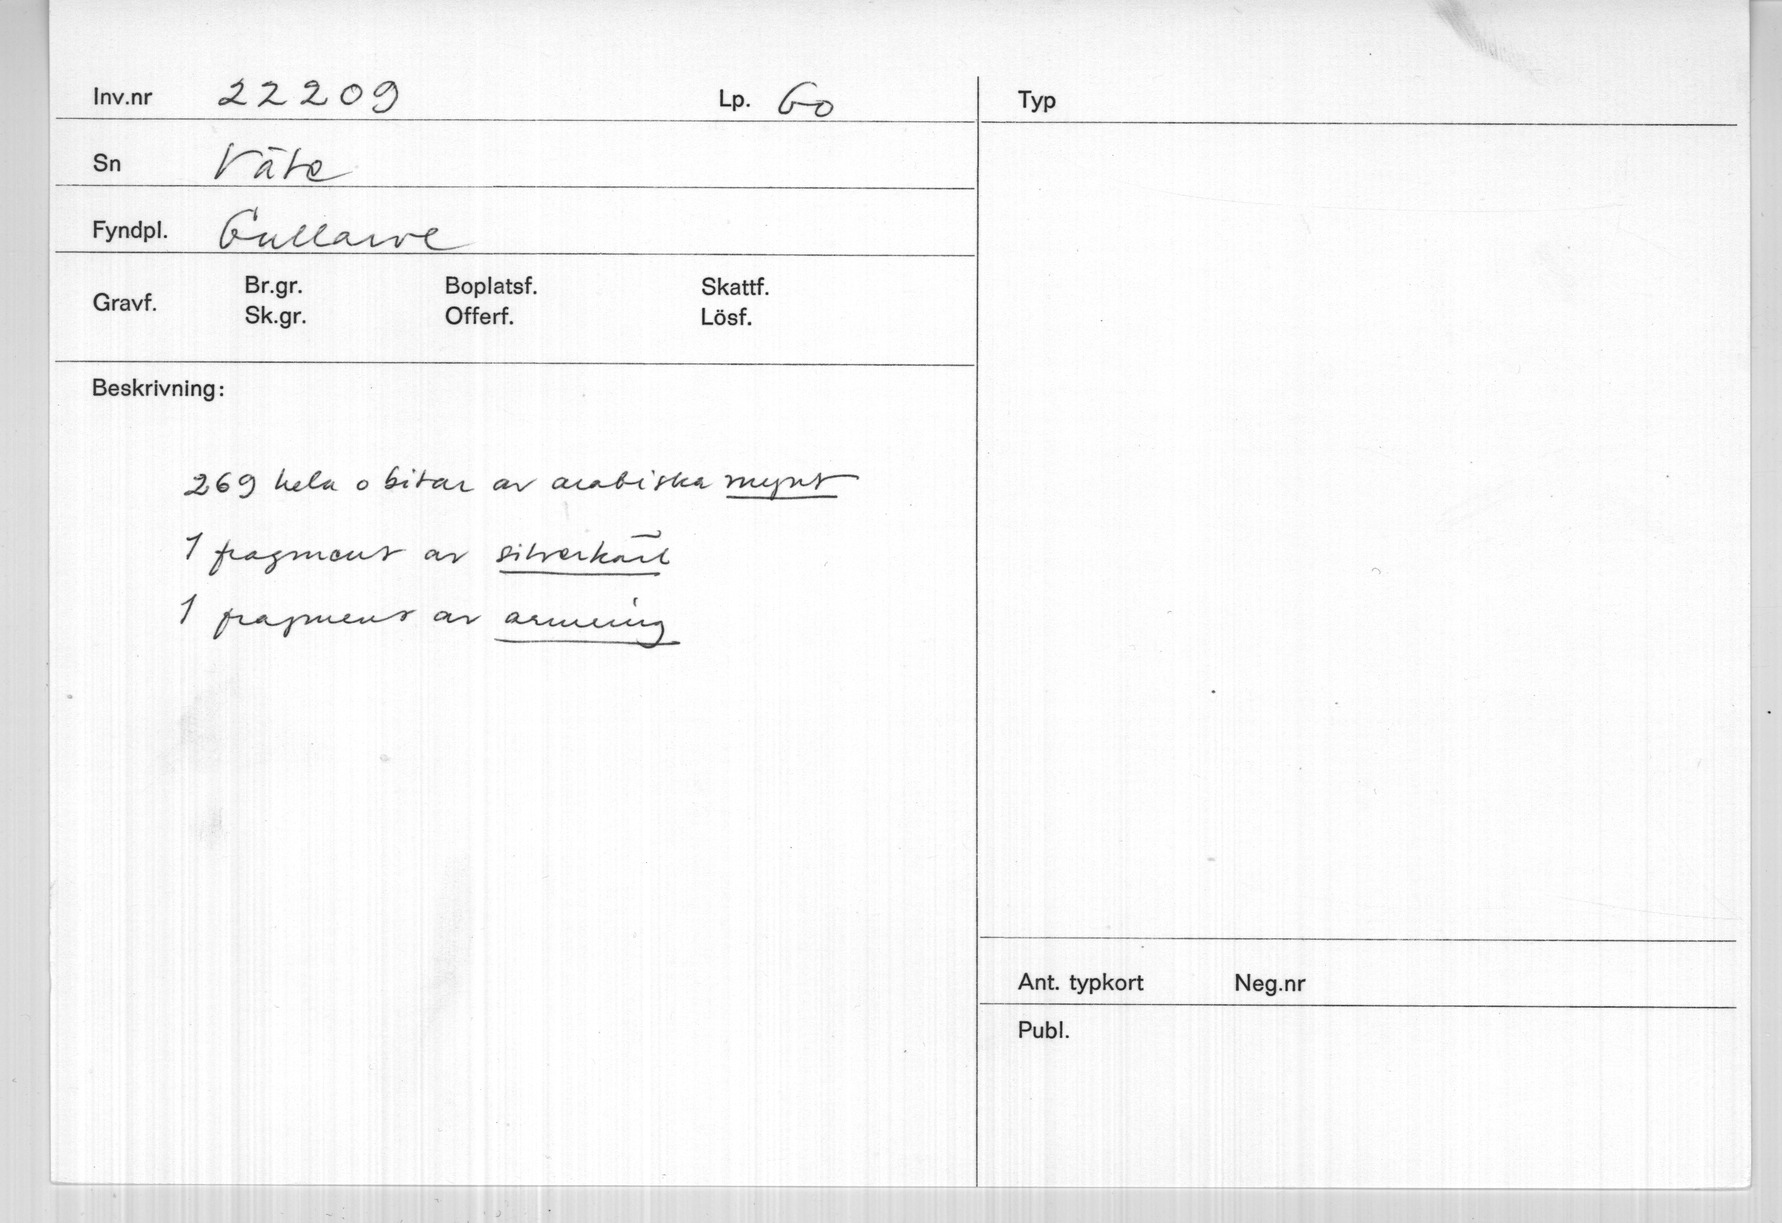 Inv.nr 22209 Lp. Go
Sn Väte
Fyndpl. Gullarve
Gravf. Br.gr. Boplatsf. Skattf.
Sk.gr. Offerf. Lösf.
Beskrivning:
269 hela o bitar av arabiska mynt
1 fragment av silverkärl
1 fragment av armring
Typ
Ant. typkort Neg.nr
Publ.